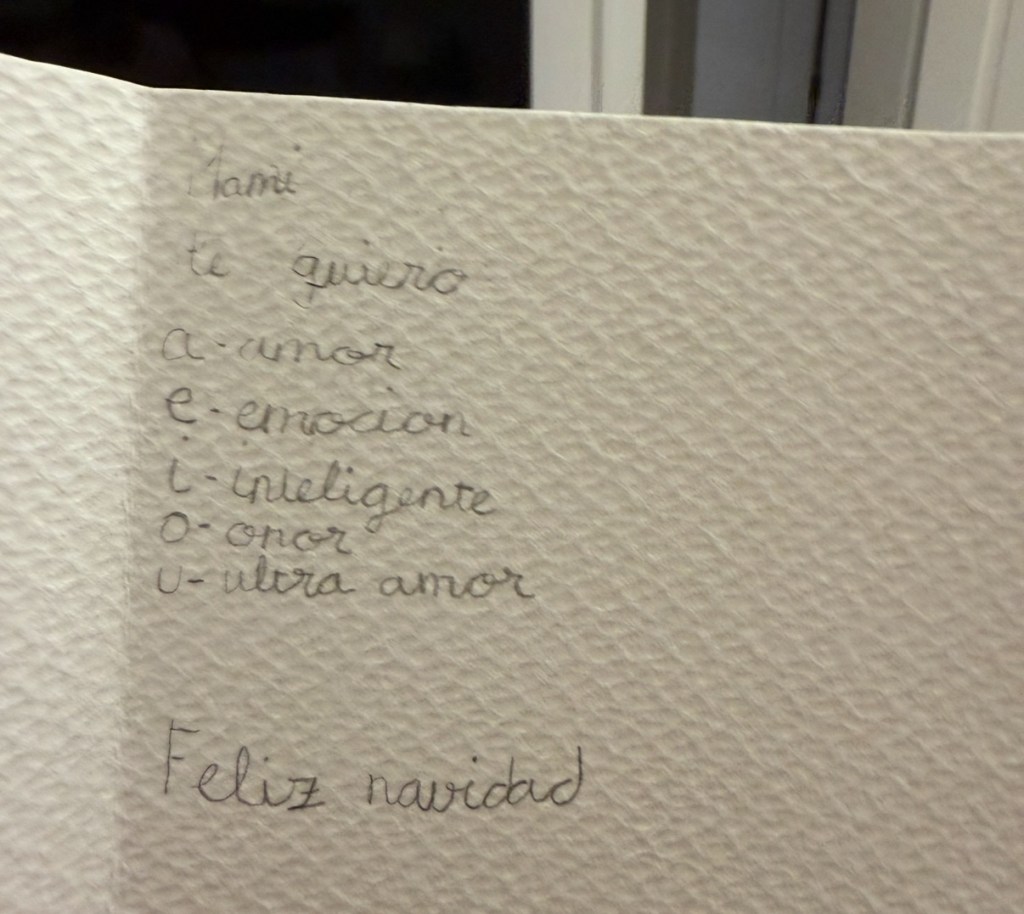 Mami
te quiero
a-amor
e-emocion
i-inteligente
o-onor
u-ultra amor
Feliz navidad